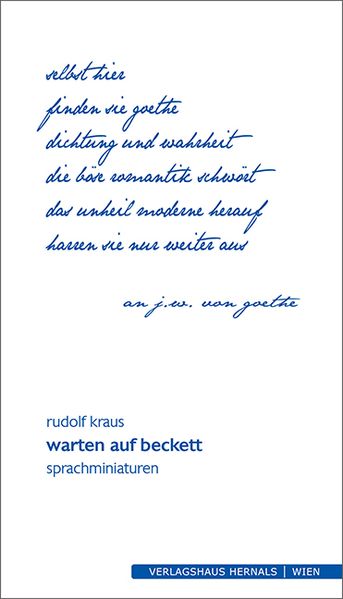 selbst hier
finden sie goethe
dichtung und wahrheit
die böse romantik schwört
das unheil moderne herauf
harren sie nur weiter aus
an j.w. von goethe
rudolf kraus
warten auf beckett
sprachminiaturen
VERLAGSHAUS HERNALS | WIEN